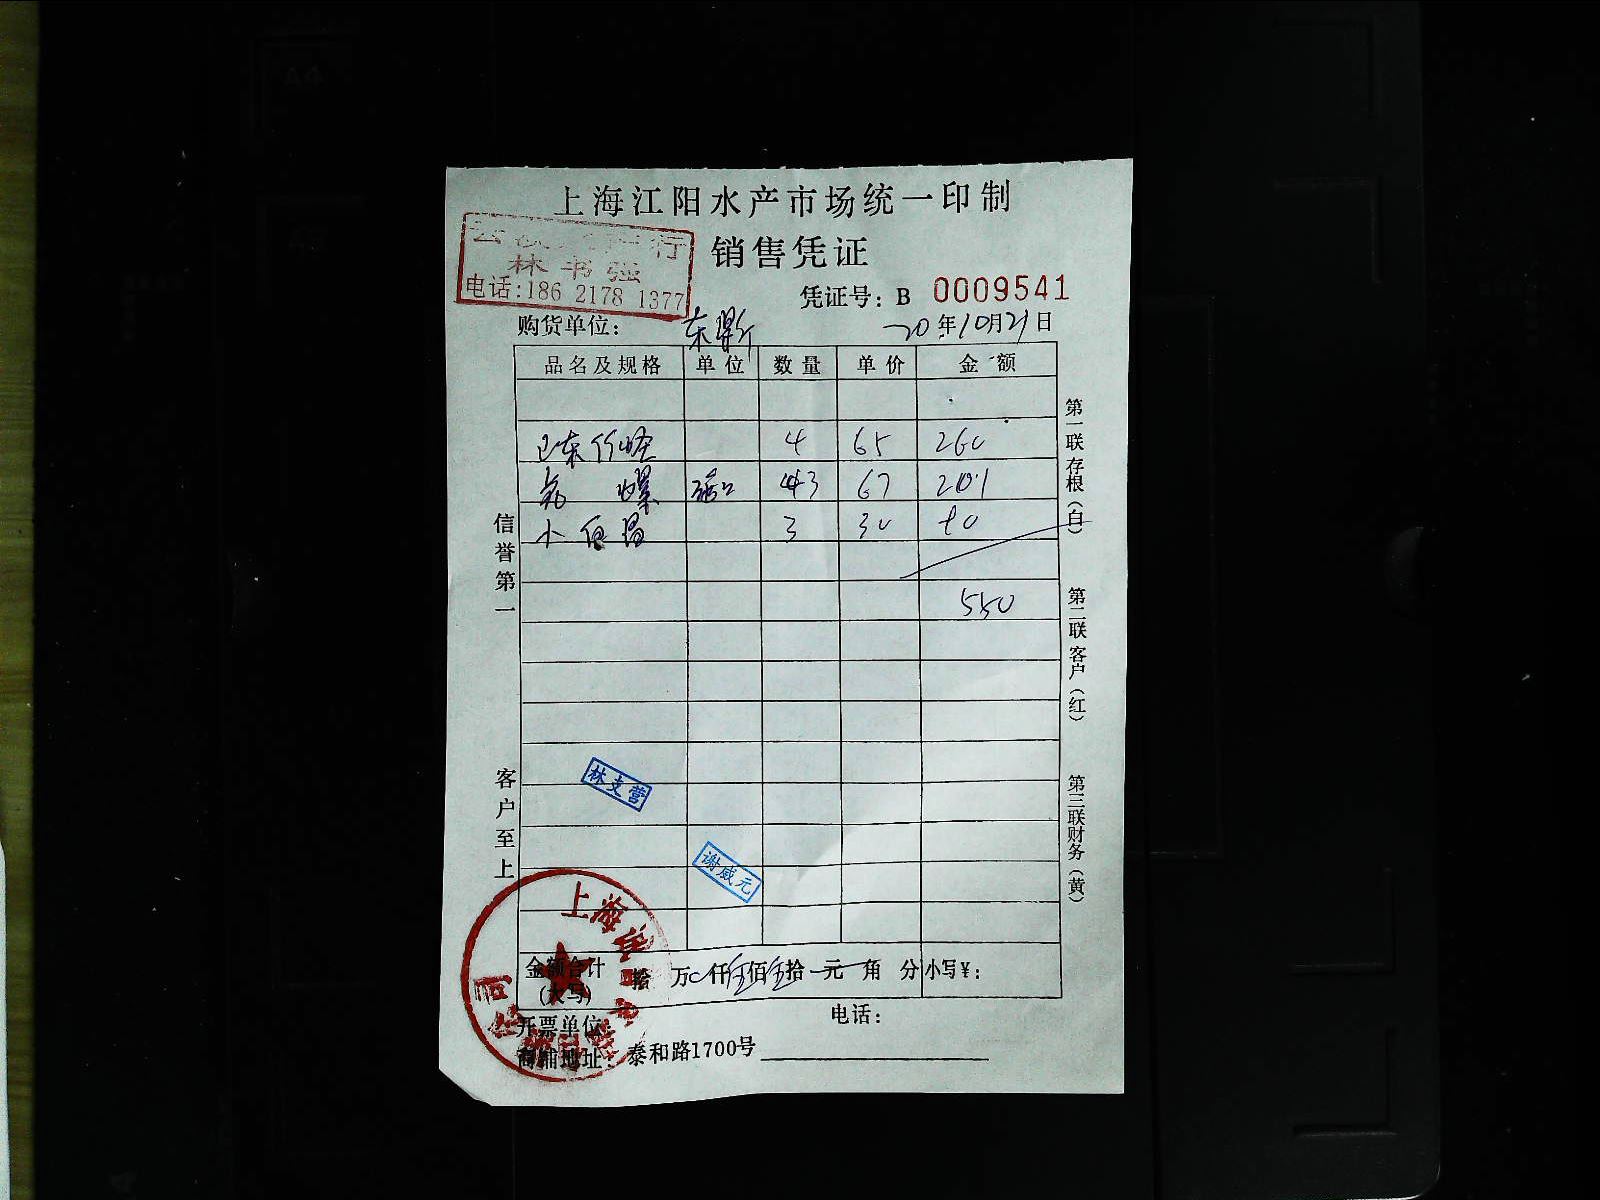 上海江阳水产市场统一印制
行
林书强
电话:186 2178 1377
销售凭证
凭证号: B 0009541
购货单位: 东
20年10月21日
品名及规格 单位 数量 单价 金额
4 65 260
螺 3 67 201
小 3 30 90
550
信誉第一
客户至上
第一联存根(白)
第二联客户(红)
第三联财务(黄)
林支营
谢威元
上海
公司
金额合计(大写) 拾 万 仟伍佰伍拾 元 角 分 小写¥:
开票单位
电话:
商铺地址: 泰和路1700号